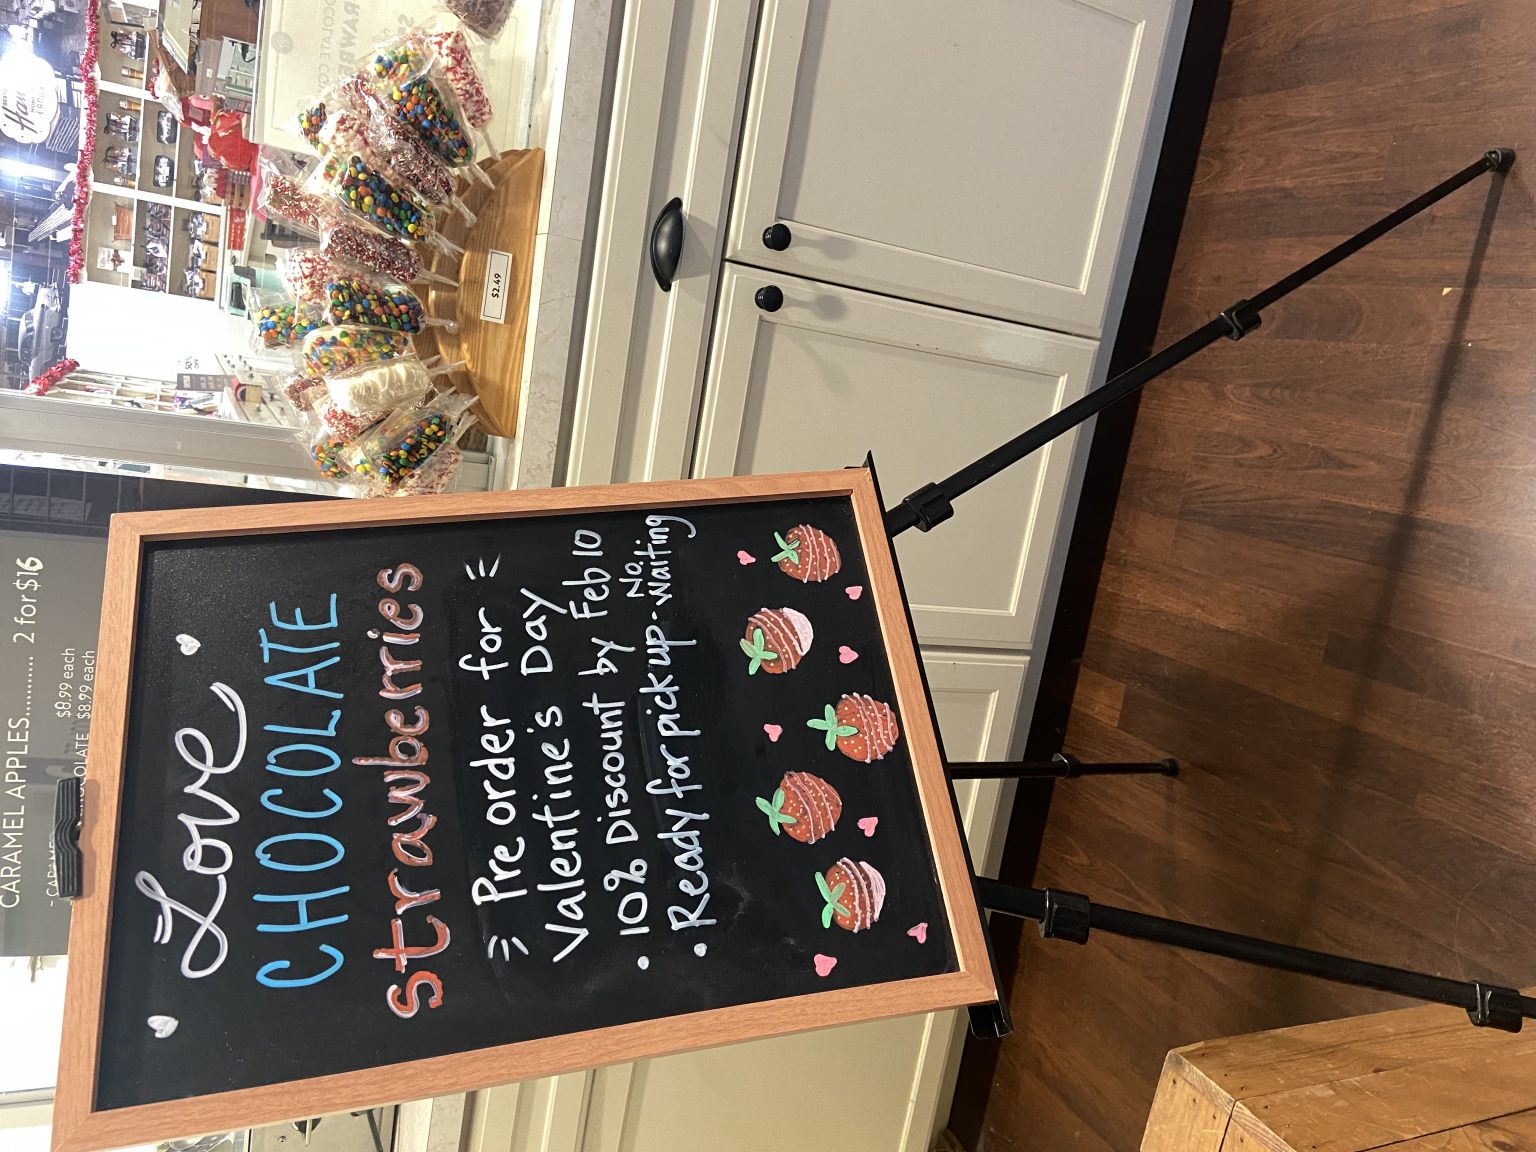 Love
CHOCOLATE
strawberries
Pre order for
Valentine's Day
• 10% Discount by Feb 10
• Ready for pick up - No. waiting
CARAMEL APPLES........... 2 for $16
$8.99 each
$8.99 each
$2.49
50%
OFF